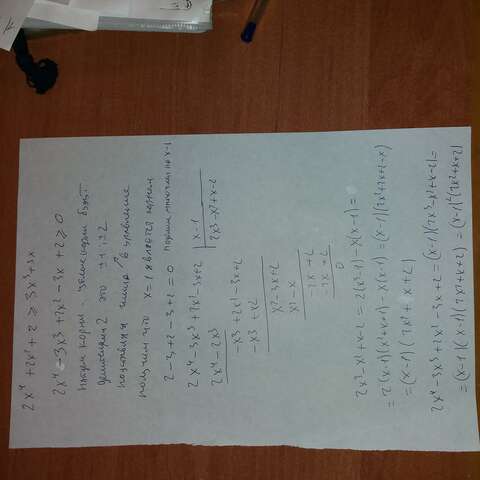 2x⁴ + 2x² + 2 ≥ 3x³ + 3x
2x⁴ - 3x³ + 2x² - 3x + 2 ≥ 0
Найдем корни целыми будут
делители 2 это ±1 ±2
подставим числа в уравнение
получим что x = 1 является корнем
2 - 3 + 2 - 3 + 2 = 0 поделим многочлен на x - 1
2x⁴ - 3x³ + 2x² - 3x + 2 | x - 1
2x⁴ - 2x³ 2x³ - x² + x - 2
- x³ + 2x² - 3x + 2
- x³ + x²
x² - 3x + 2
x² - x
- 2x + 2
- 2x + 2
0
2x³ - x² + x - 2 = 2(x³ - 1) - x(x - 1) =
= 2(x - 1)(x² + x + 1) - x(x - 1) = (x - 1)(2x² + 2x + 2 - x)
= (x - 1)(2x² + x + 2)
2x⁴ - 3x³ + 2x² - 3x + 2 = (x - 1)(2x³ - x² + x - 2) =
= (x - 1)(x - 1)(2x² + x + 2) = (x - 1)²(2x² + x + 2)